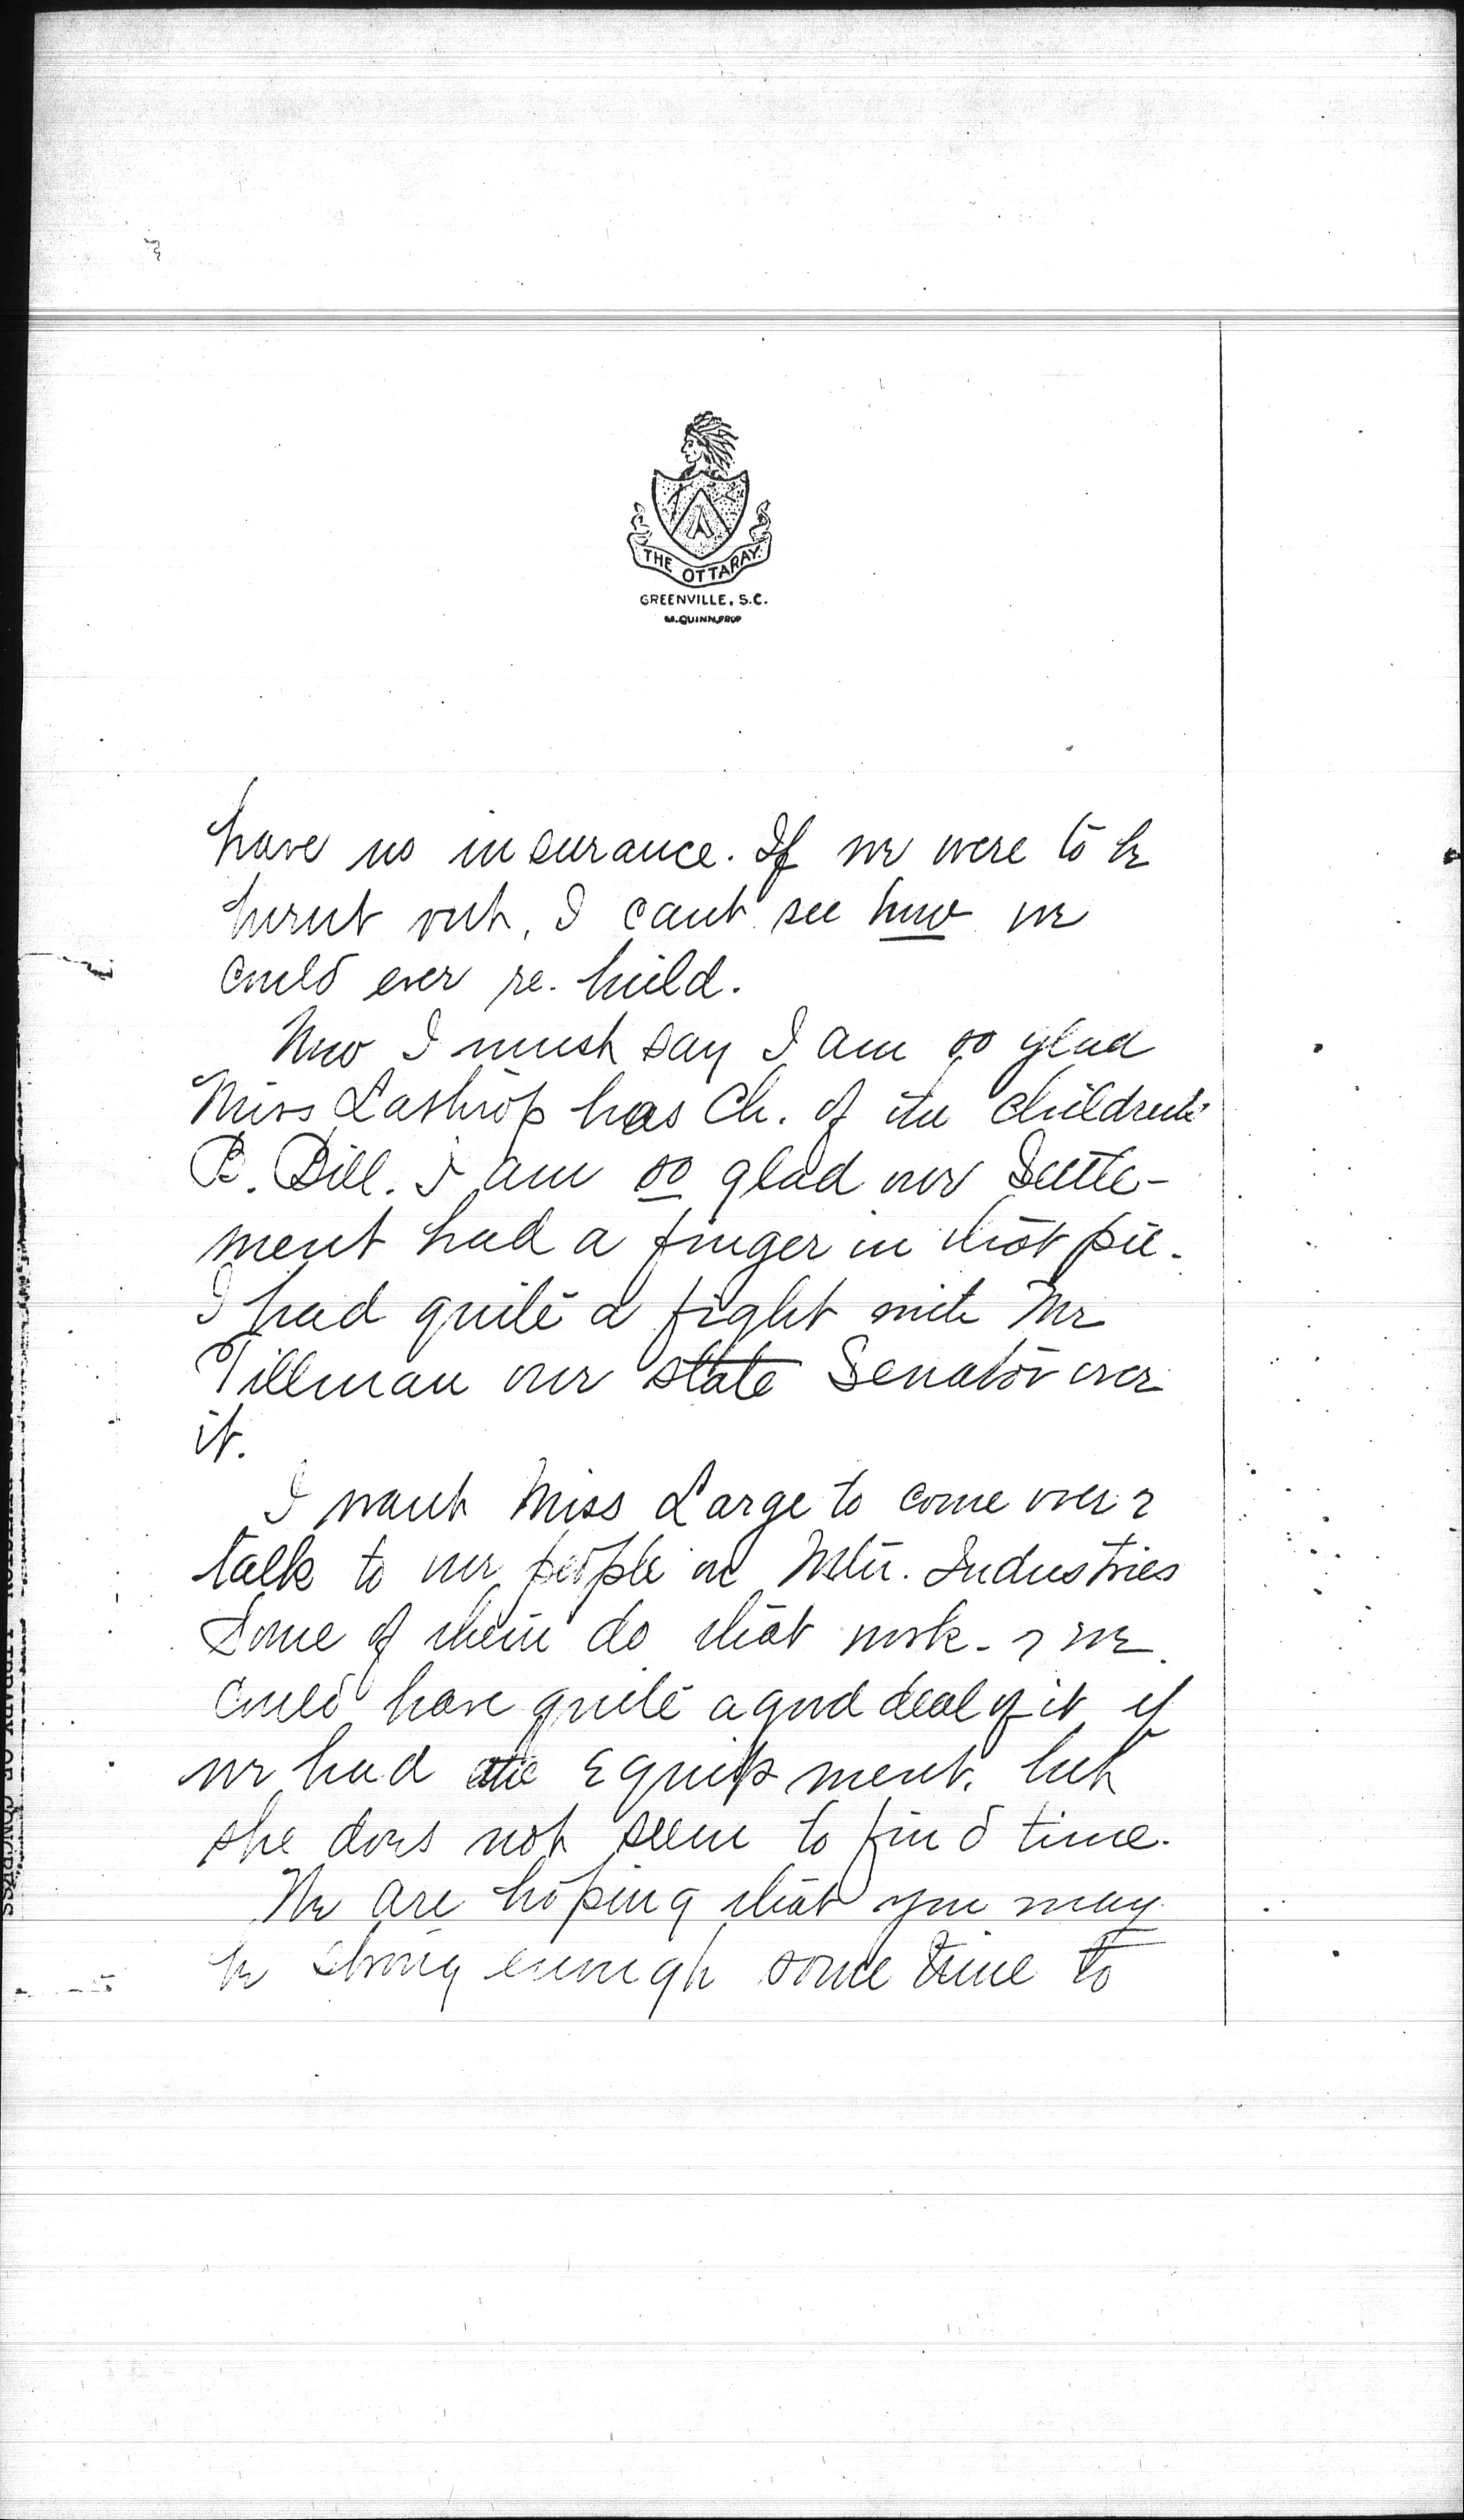 THE OTTARAY.
GREENVILLE, S.C.
M. QUINN, PROP
have no insurance. If we were to be
burnt out, I cant see how we
could ever re-build.
Now I must say I am so glad
Miss Lasthrop has Ch. of the children's
B. Bill. I am so glad our Settle-
ment had a finger in that pie.
I had quite a fight with Mr
Tillman our state Senator over
it.
I want Miss Large to come over &
talk to our people on Mtn. Industries
Some of them do that work - & we
could have quite a good deal of it if
we had the Equipment. but
she does not seem to find time.
We are hoping that you may
be strong enough some time to
LIBRARY OF CONGRESS